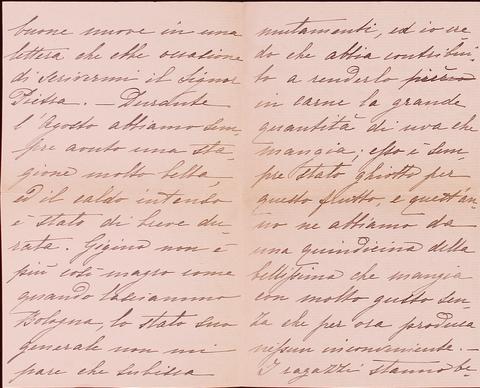 buone nuove in una
lettera che ebbe occasione
di scrivermi il Signor
Pietra. — Durante
l'Agosto abbiamo sem-
pre avuto una sta-
gione molto bella,
ed il caldo intenso
è stato di breve du-
rata. Gigino non è
più così magro come
quando lasciammo
Bologna, lo stato suo
generale non mi
pare che subisca
mutamenti, ed io cre
do che abbia contribui-
to a renderlo
in carne la grande
quantità di uva che
mangia; esso è sem-
pre stato ghiotto per
questo frutto, e quest'an-
no ne abbiamo da
una quindicina della
bellissima che mangia
con molto gusto sen-
za che per ora produca
nessun inconveniente. —
I ragazzi stanno be-